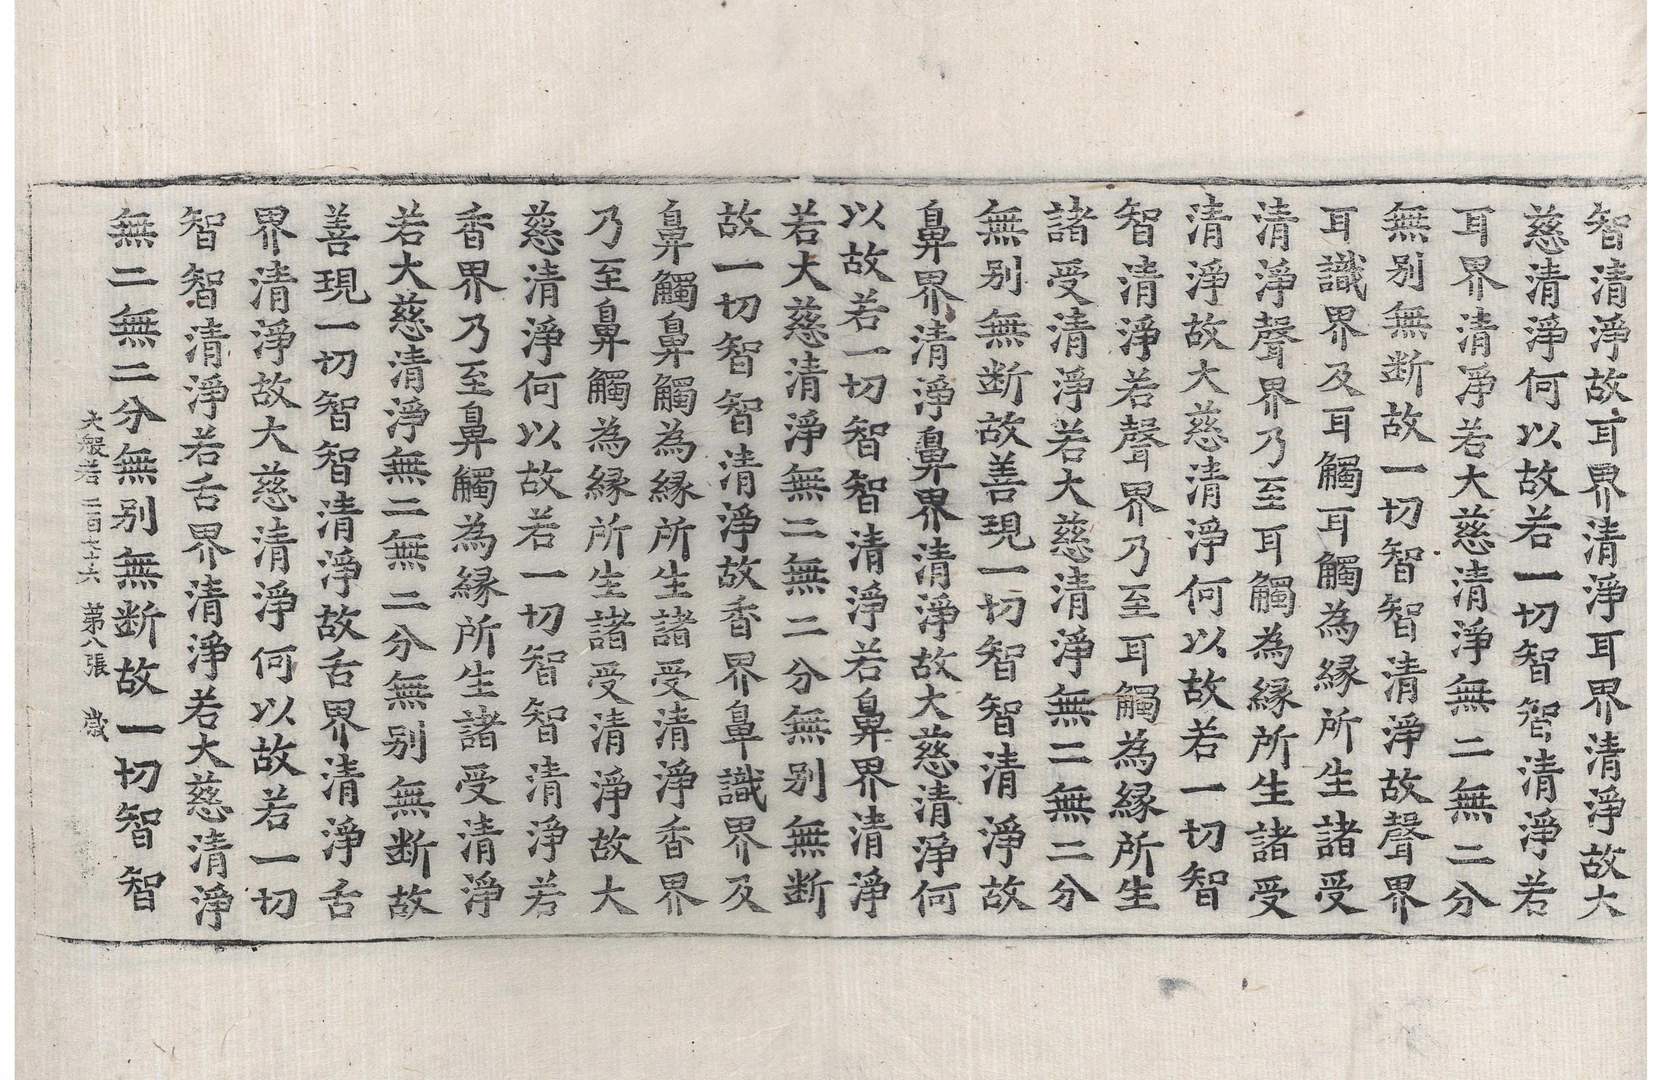 智清淨故耳界清淨耳界清淨故大
慈清淨何以故若一切智智清淨若
耳界清淨若大慈清淨無二無二分
無別無断故一切智智清淨故聲界
耳識界及耳觸耳觸為緣所生諸受
清淨聲界乃至耳觸為緣所生諸受
清淨故大慈清淨何以故若一切智
智清淨若聲界乃至耳觸為緣所生
諸受清淨若大慈清淨無二無二分
無別無断故善現一切智智清淨故
鼻界清淨鼻界清淨故大慈清淨何
以故若一切智智清淨若鼻界清淨
若大慈清淨無二無二分無別無断
故一切智智清淨故香界鼻識界及
鼻觸鼻觸為緣所生諸受清淨香界
乃至鼻觸為緣所生諸受清淨故大
慈清淨何以故若一切智智清淨若
香界乃至鼻觸為緣所生諸受清淨
若大慈清淨無二無二分無別無断故
善現一切智智清淨故舌界清淨舌
界清淨故大慈清淨何以故若一切
智智清淨若舌界清淨若大慈清淨
無二無二分無別無断故一切智智
大般若 二百七十六 第八張 歲